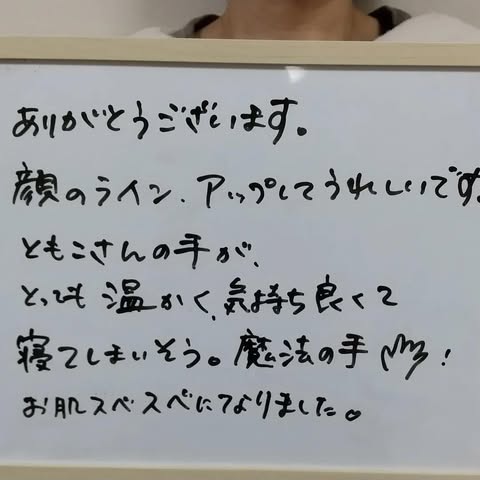 ありがとうございます。
顔のライン、アップしてうれしいです
ともこさんの手が、
とっても温かく、気持ち良くて
寝てしまいそう。魔法の手!
お肌スベスベになりました。